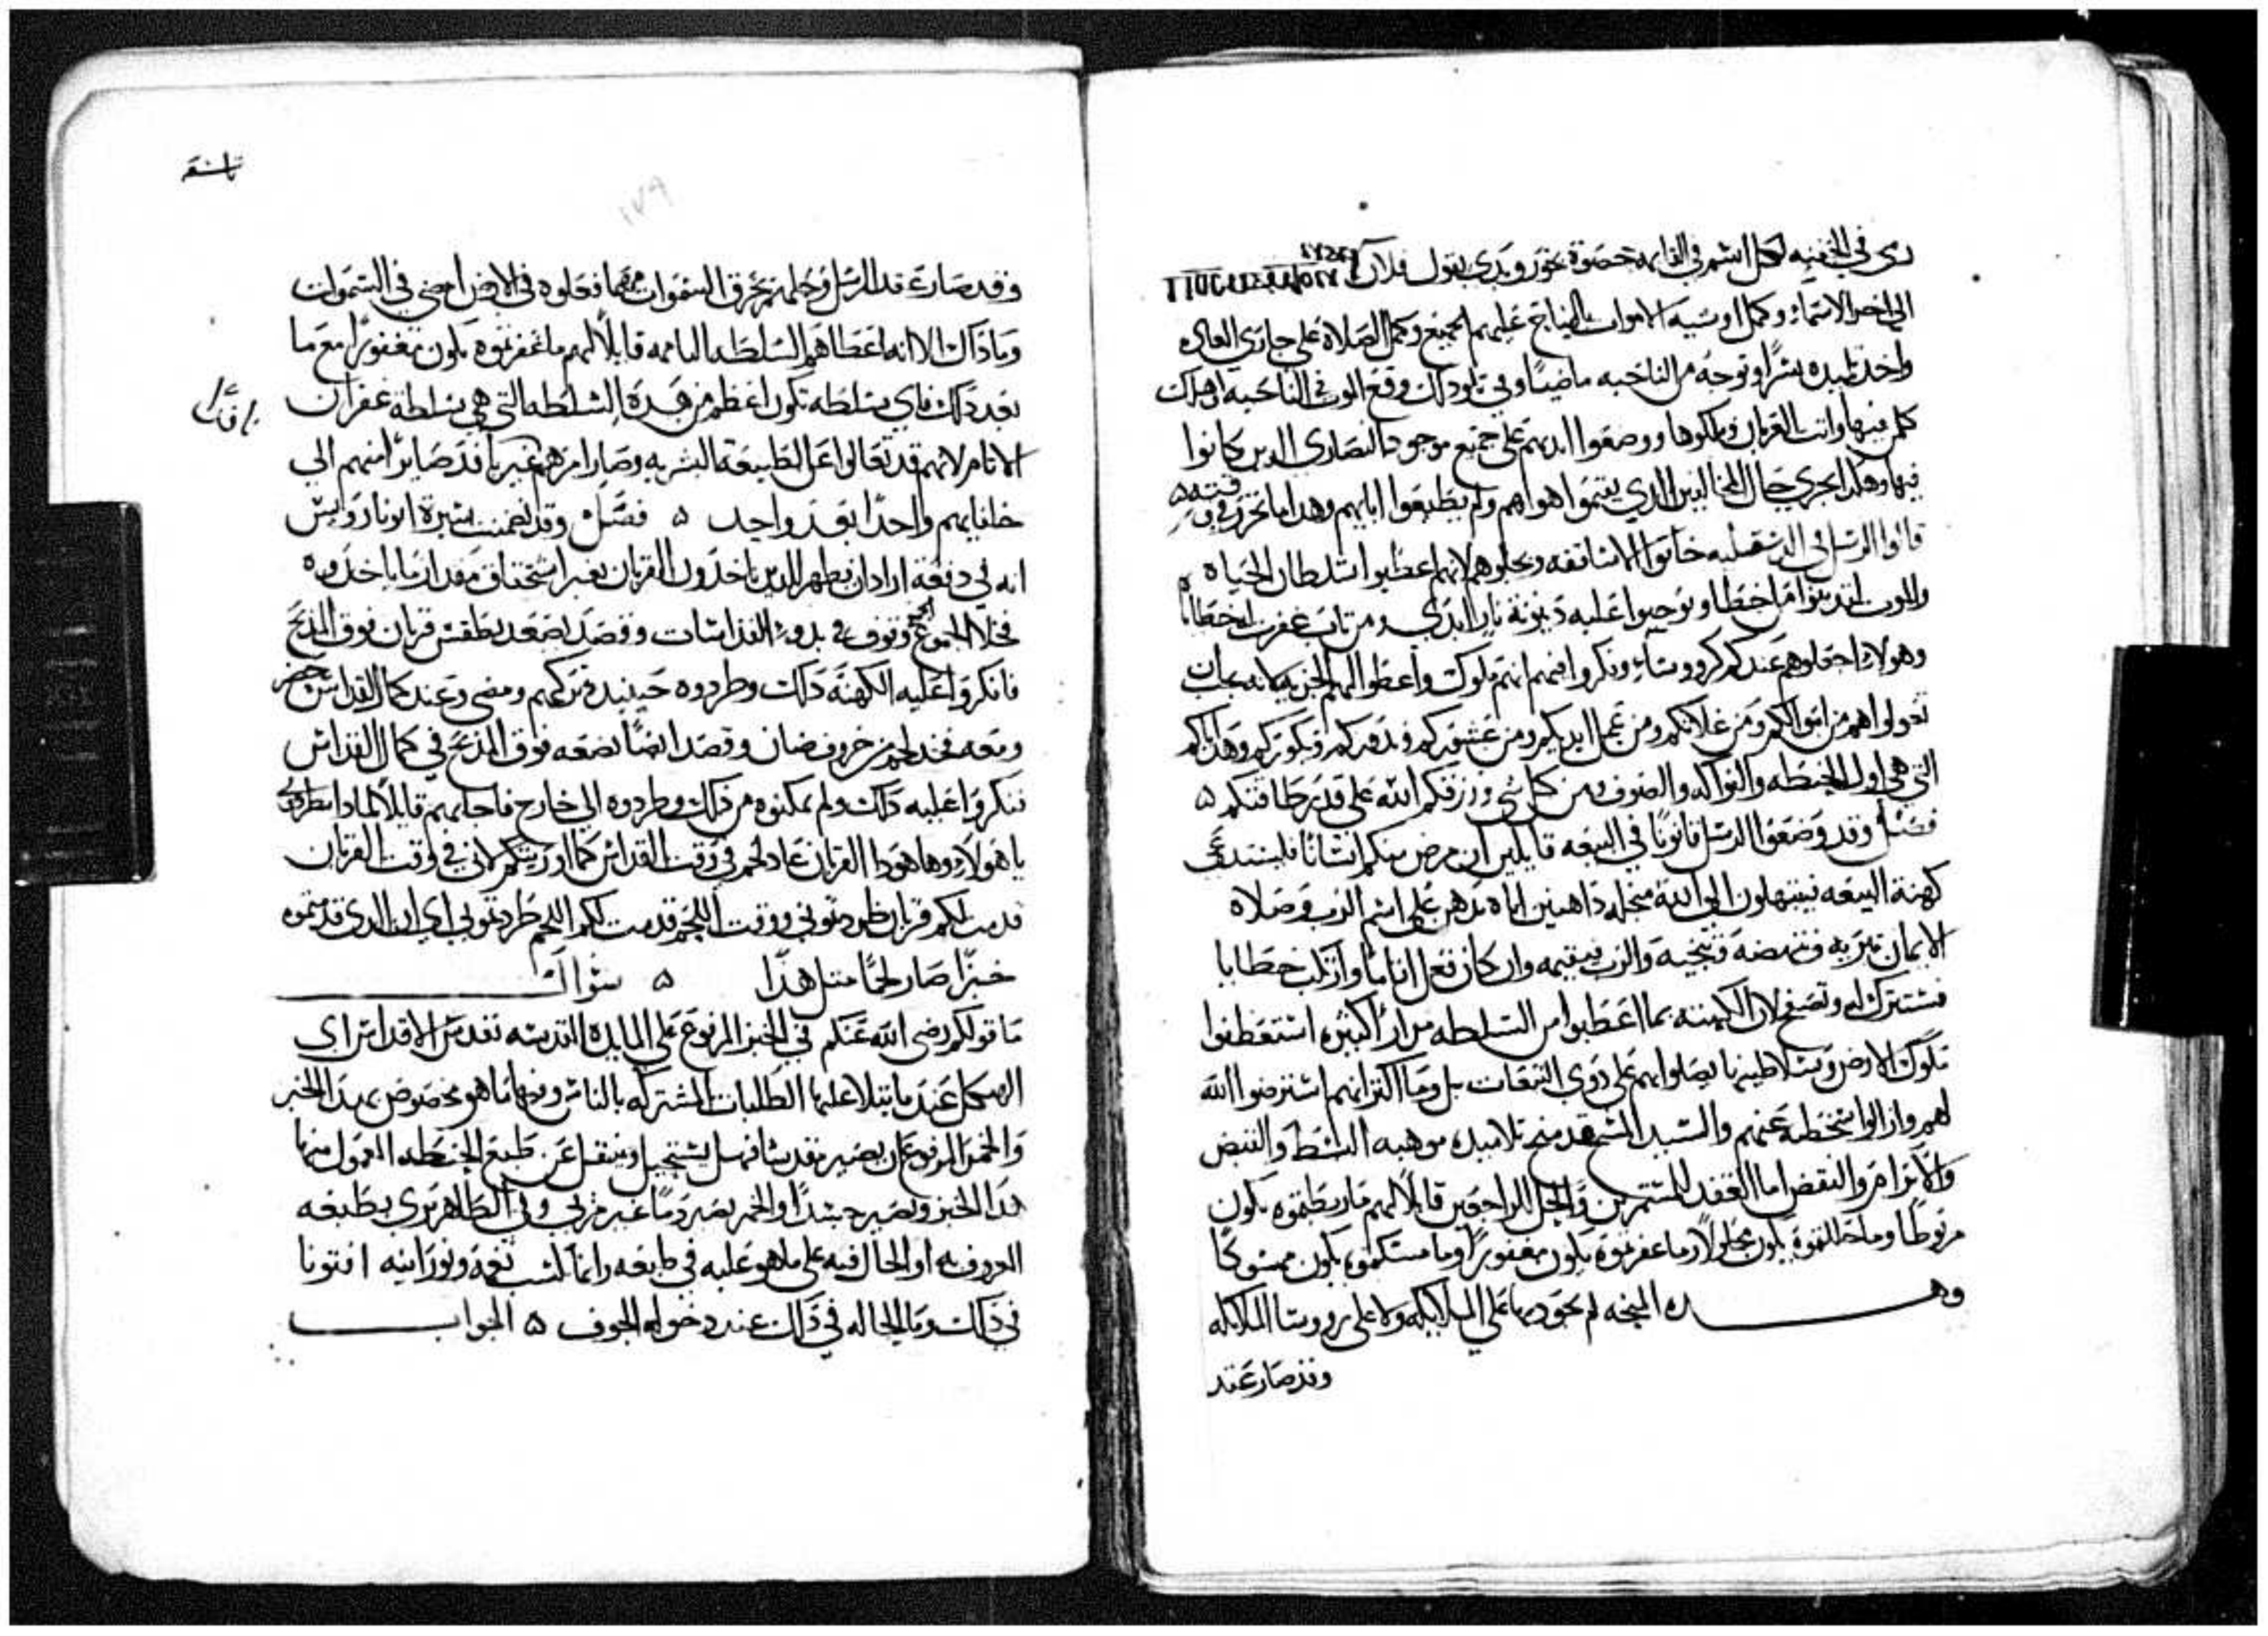 رى في الخفيه لكل اسم في القايمه حصوة بخور وبدى يقول فلان
الى اخر الاسماء وكمل اوسية الاموات بالنياح عليهم الجميع وكمل الصلاة على جاري العاده
واخد تلميده سرًا وتوجه من الناحيه ماضيًا وفي تلو دلك وقع الموت في الناحيه اهلك
كلمن فيها واتت الغربان وملكوها ووضعوا ايديهم على جميع موجود النصارى الدين كانوا
فيها وهكدا يجري حال المخالفين الدي يتبعوا اهواهم ولم يطيعوا اباهم وهدا ما تحرر في
قالوا الرسل في الدسقليه خافوا الاساقفه وبجلوهم لانهم اعطيوا سلطان الحياه
والموت ليدينوا من اخطا ويوجبوا عليه دينونة نار الابدي ومن تاب غفرت له خطاياه
وهولاء احملوهم عندكم كرووسا وتكرموا فيهم انهم ملوك واعطوا الهم الجزيه لانه يجب ان
تعولواهم من اموالكم ومن غلاتكم ومن عمل ايديكم ومن عشوركم وندوركم وبكوركم
التي هي اول الحنطه والفواكه والصوف ومن كل شي ورزقكم الله على قدر طاقتكم ۵
فصل وقد وضعوا الرسل قانونًا في البيعه قايلين ان مرض منكم انسانًا فليستدعي
كهنة البيعه فيبتهلون الى الله من اجله داهنين اياه بدهن على اسم الرب وصلاة
الايمان تبريه وتنهضه وتنجيه والرب فيقيمه وان كان فعل اتامًا وارتكب خطايا
فستترك له وتصفح لان الكهنه بما اعطيوا من السلطه مرارًا كثيره استعطفوا
ملوك الارض وسلاطينها بصلواتهم على دوي التبعات بل وما اكتر انهم استرضوا الله
لهم وازالوا سخطه عنهم والسيد المسيح قد منح تلاميده موهبه البسط والقبض
والابرام والنقض اما العقد للمستمرين والحل للراجعين قايلًا لهم ما ربطتموه يكون
مربوطًا وما حللتموه يكون محلولًا وما غفرتموه يكون مغفورًا وما مسكتموه يكون ممسوكًا
وهده المنحه لم يجود بها على الملايكه ولا على رووسا الملايكه
وقد صار عقد
تاسع
١٧٩
وقد صار عقد الرسل وحلهم يخرق السموات مهما فعلوه في الارض امضي في السموات
وما داك الا انه اعطاهم السلطه التامه قايلًا لهم ما غفرتموه يكون مغفورًا مع ما
بعد دلك فاي سلطه تكون اعظم من هده السلطه التي هي سلطة غفران
الاتام لانهم قد تعالوا على الطبيعة البشريه وصار امرهم غير نافد صاير منهم الى
خلفايهم واحدًا بعد واحد ۵ فصل وقد تضمنت سيرة ابونا رويس
انه في دفعة اراد ان يظهر للدين ياخدون القربان بغير استحقاق مقدار ما ياخدوه
فخلا الجموع وتوقف في بدو القداسات وقصد يصعد بطقس قربان فوق المدبح
فانكروا عليه الكهنة دلك وطردوه حينيد تركهم ومضى وعند كمال القداس حضر
ومعه فخد لحم خروف ضان وقصد ايضًا يضعه فوق المدبح في كمال القداس
فنكروا عليه دلك ولم يمكنوه من دلك وطردوه الى خارج فاجابهم قايلًا لمادا تطردوني
يا هولاء وها هودا القربان عاد لحم في وقت القداس كما اوريتكم لاني في وقت القربان
قدمت لكم قربان طردتوني ووقت اللحم قدمت لكم اللحم طردتوني اي ان الدي قدمتموه
خبزًا صار لحمًا متل هدا ۵ سوال
ما قولكم رضى الله عنكم في الخبز المرفوع على المايده المقدسه بقدس الاقداس اي
الهيكل عند ما يتلا عليها الطلبات المشتركه بالناس ومنها ما هو مخصوص بهدا الخبز
والخمر المرفوعان بصير تقديسا فهل يستحيل وينتقل عن طبع الحنطه المعمول منها
هدا الخبز ويصير جسدًا والخمر يصير دمًا غير مربي وفي الظاهر يرى بطبعه
المعروف به او الحال فيه على ما هو عليه في طابعه وانما اكتسب نعمه ونورانيه افتونا
في دلك وما الحاله في دلك عند دخوله الجوف ۵ الجواب